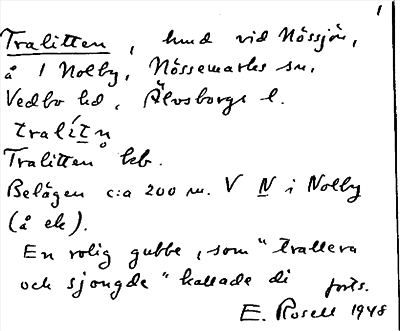 1
Tralitten, hmd vid Nössjön,
å 1 Nolby, Nössemarks sn,
Vedbo hd, Älvsborgs l.
tralítn̥
Tralitten kb.
Belägen c:a 200 m. V N i Nolby
(å ek).
En rolig gubbe, som "trallera
och sjongde" kallade di
forts.
E. Rosell 1948